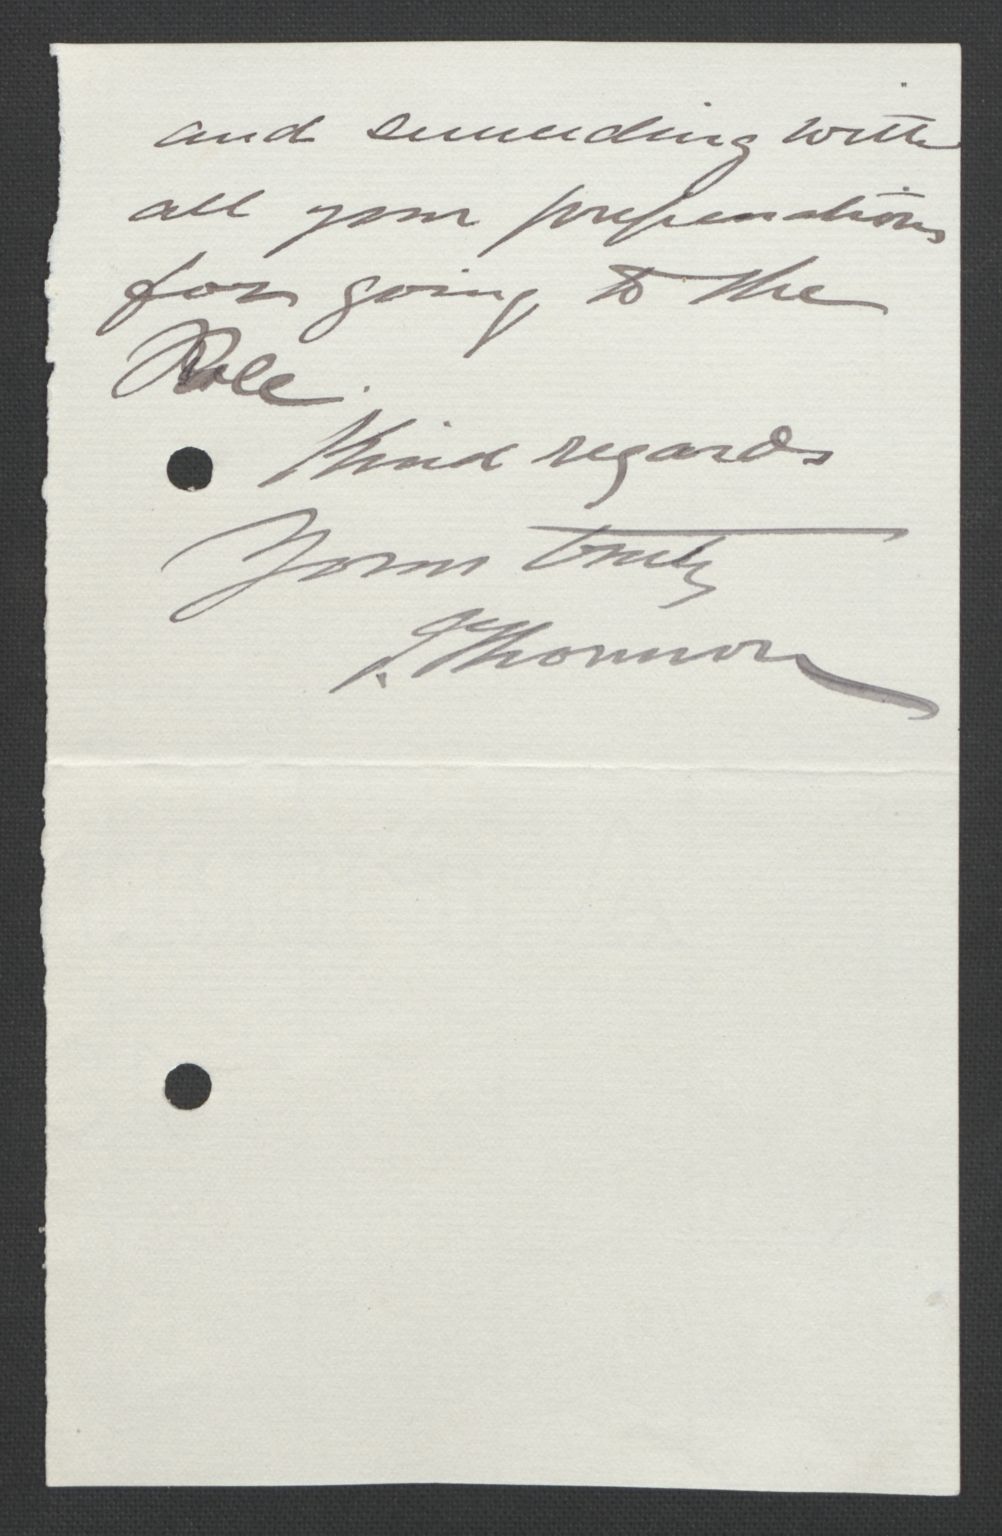 and succeeding with
all your preparations
for going to the
Pole.
Kind regards
Yours truly